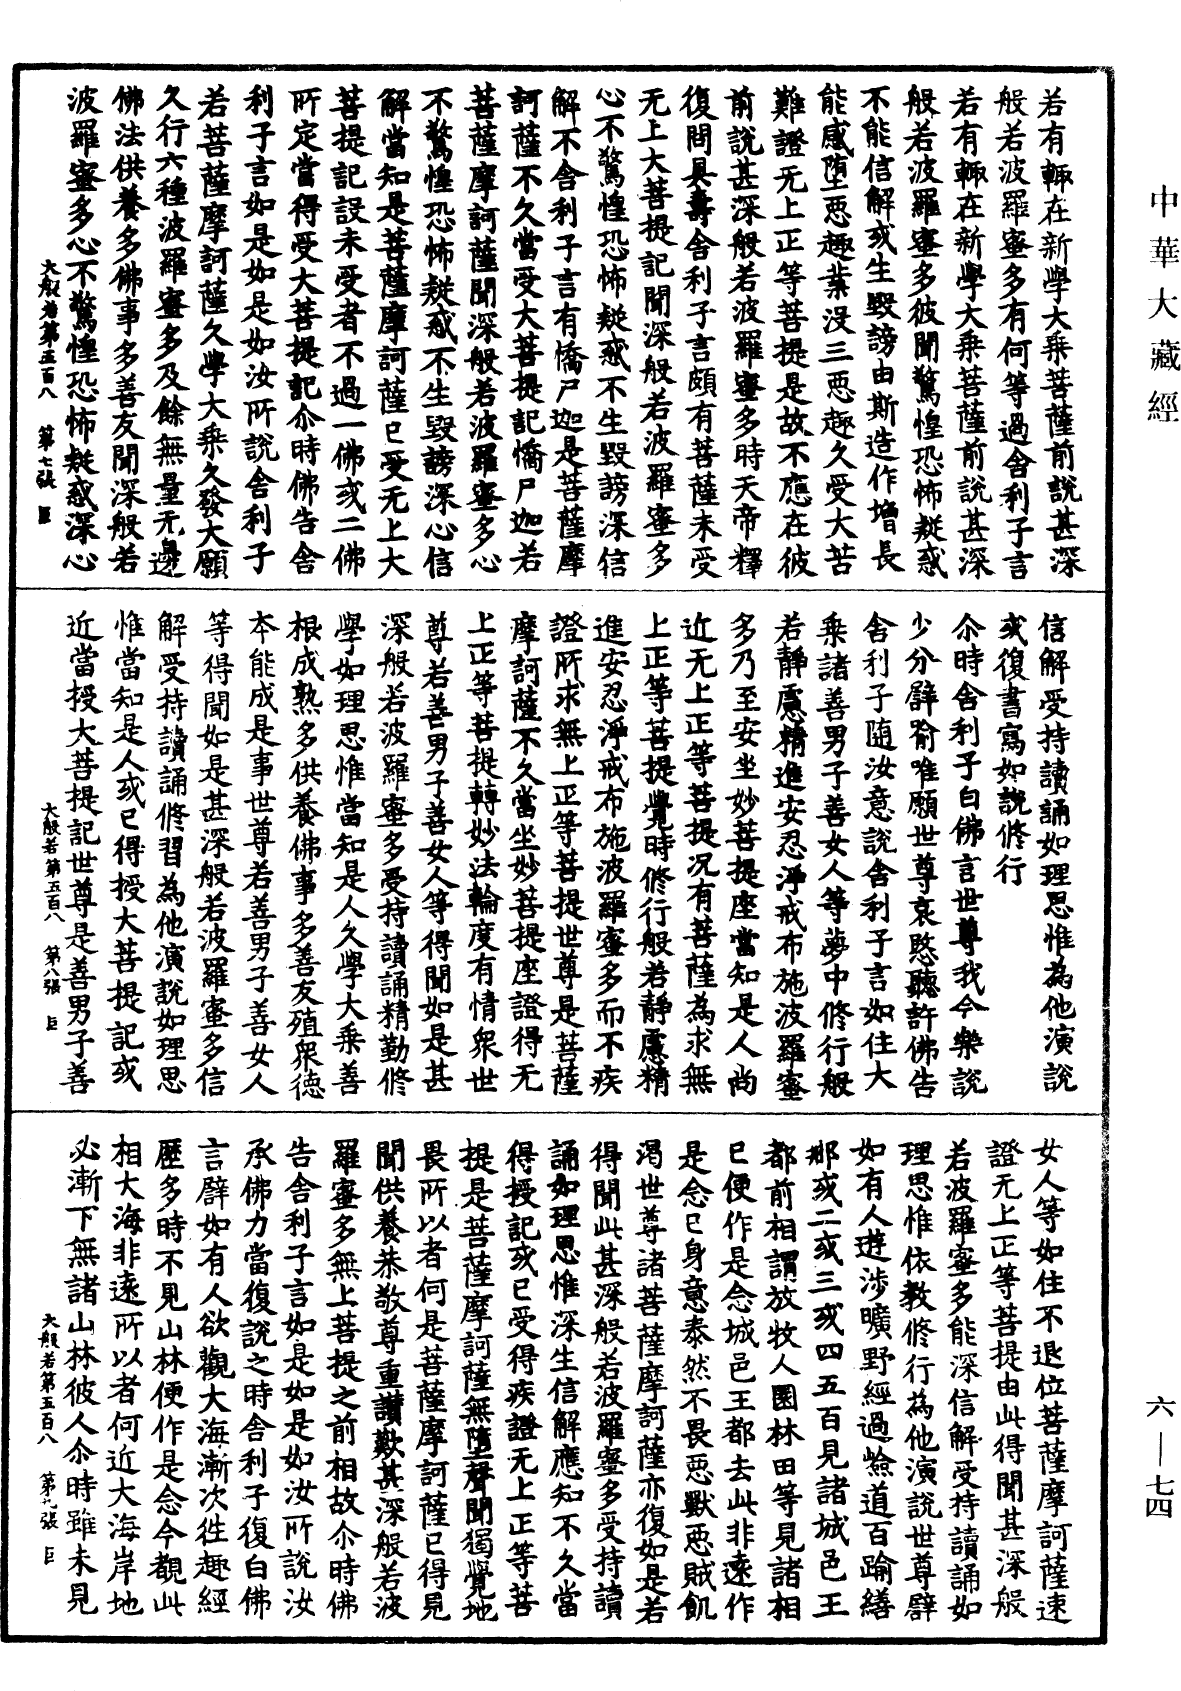 中華大藏經
若有輙在新學大乗菩薩前說甚深
般若波羅蜜多有何等過舍利子言
若有輙在新學大乗菩薩前說甚深
般若波羅蜜多彼聞驚惶恐怖疑惑
不能信解或生毀謗由斯造作增長
能感墮惡趣業没三惡趣久受大苦
難證无上正等菩提是故不應在彼
前說甚深般若波羅蜜多時天帝釋
復問具壽舍利子言頗有菩薩未受
无上大菩提記聞深般若波羅蜜多
心不驚惶恐怖疑惑不生毀謗深信
解不舍利子言有憍尸迦是菩薩摩
訶薩不久當受大菩提記憍尸迦若
菩薩摩訶薩聞深般若波羅蜜多心
不驚惶恐怖疑惑不生毀謗深心信
解當知是菩薩摩訶薩已受无上大
菩提記設未受者不過一佛或二佛
所定當得受大菩提記尒時佛告舍
利子言如是如是如汝所說舍利子
若菩薩摩訶薩久學大乗久發大願
久行六種波羅蜜多及餘無量无邊
佛法供養多佛事多善友聞深般若
波羅蜜多心不驚惶恐怖疑惑深心
大般若第五百八 第七張 臣
信解受持讀誦如理思惟為他演說
或復書寫如說修行
尒時舍利子白佛言世尊我今樂說
少分譬喻唯願世尊哀愍聽許佛告
舍利子随汝意說舍利子言如住大
乗諸善男子善女人等夢中修行般
若靜慮精進安忍淨戒布施波羅蜜
多乃至安坐妙菩提座當知是人尚
近无上正等菩提况有菩薩為求無
上正等菩提覺時修行般若靜慮精
進安忍淨戒布施波羅蜜多而不疾
證所求無上正等菩提世尊是菩薩
摩訶薩不久當坐妙菩提座證得无
上正等菩提轉妙法輪度有情衆世
尊若善男子善女人等得聞如是甚
深般若波羅蜜多受持讀誦精勤修
學如理思惟當知是人久學大乗善
根成熟多供養佛事多善友殖衆德
本能成是事世尊若善男子善女人
等得聞如是甚深般若波羅蜜多信
解受持讀誦修習為他演說如理思
惟當知是人或已得授大菩提記或
近當授大菩提記世尊是善男子善
大般若第五百八 第八張 臣
女人等如住不退位菩薩摩訶薩速
證无上正等菩提由此得聞甚深般
若波羅蜜多能深信解受持讀誦如
理思惟依教修行為他演說世尊譬
如有人遊涉曠野經過嶮道百踰繕
那或二或三或四五百見諸城邑王
都前相謂放牧人園林田等見諸相
已便作是念城邑王都去此非遠作
是念已身意泰然不畏惡獸惡賊飢
渴世尊諸菩薩摩訶薩亦復如是若
得聞此甚深般若波羅蜜多受持讀
誦如理思惟深生信解應知不久當
得授記或已受得疾證无上正等菩
提是菩薩摩訶薩無墮聲聞獨覺地
畏所以者何是菩薩摩訶薩已得見
聞供養恭敬尊重讃歎甚深般若波
羅蜜多無上菩提之前相故尒時佛
告舍利子言如是如是如汝所說汝
承佛力當復說之時舍利子復白佛
言譬如有人欲觀大海漸次往趣經
歷多時不見山林便作是念今覩此
相大海非遠所以者何近大海岸地
必漸下無諸山林彼人尒時雖未見
大般若第五百八 第九張 臣
六—七四